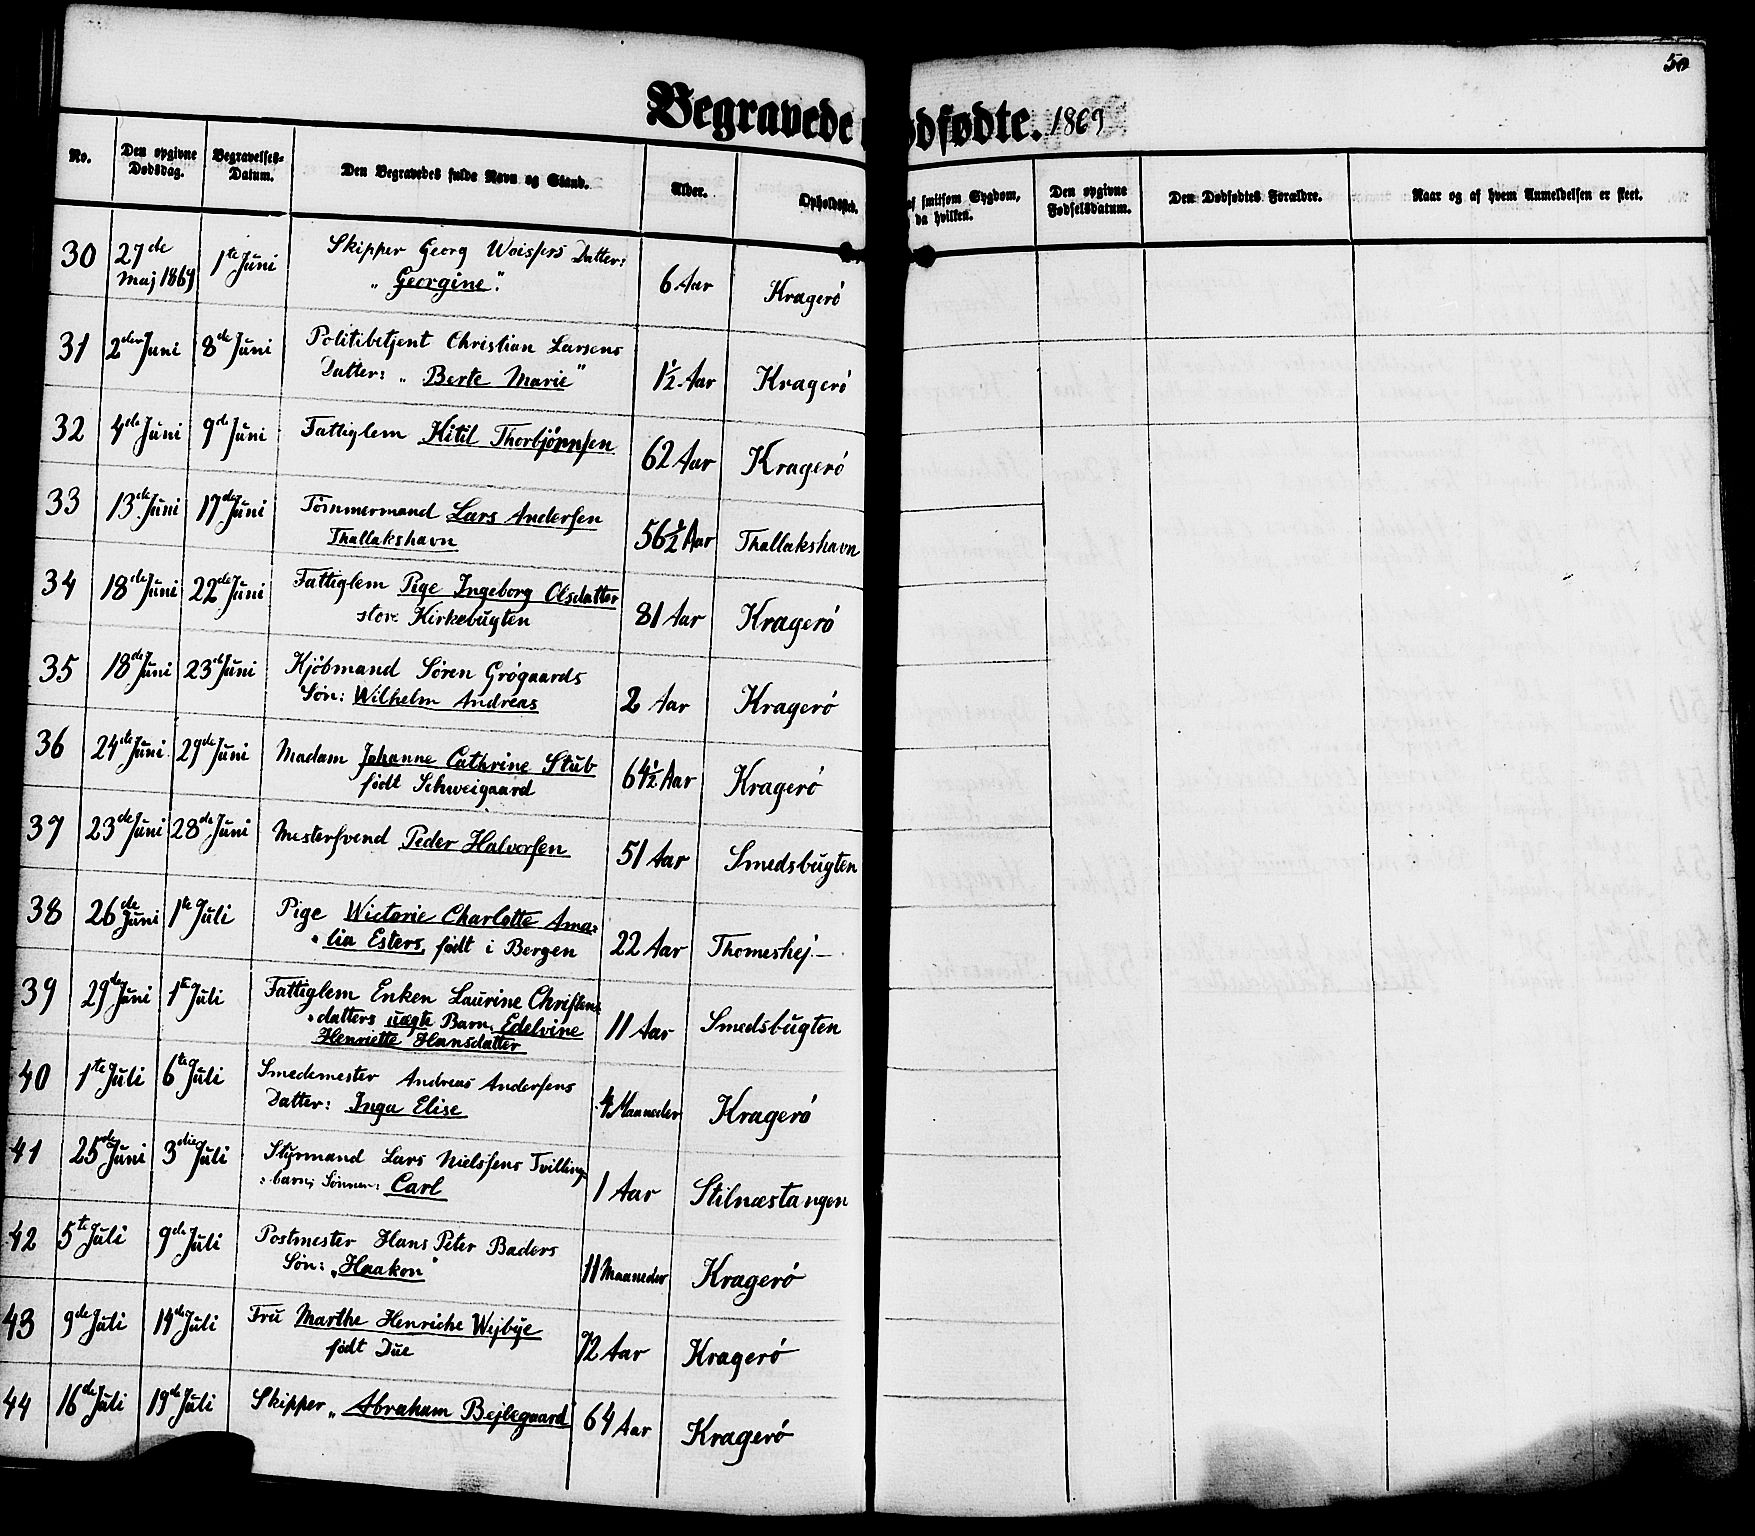 50
Begravede ødfødte. 1869
No. Den opgivne Dødsdag. Begravelses-Datum. Den Begravedes fulde Navn og Stand. Alder. Opholdssted. af smitsom Sygdom, da hvilken. Den opgivne Fødselsdatum. Den Dødfødtes Forældre. Naar og af hvem Anmeldelsen er skeet.
30 27de Maj 1869 1te Juni Skipper Georg Woissers Datter:
„Georgine". 6 Aar Kragerø
31 2den Juni 8de Juni Politibetjent Christian Larsens
Datter: „Berte Marie" 1½ Aar Kragerø
32 4de Juni 9de Juni Fattiglem Kitil Thorbjørnsen 62 Aar Kragerø
33 13de Juni 17de Juni Tømmermand Lars Andersen
Thallakshavn 56½ Aar Thallakshavn
34 18de Juni 22de Juni Fattiglem Pige Ingeborg Olsdatter
store Kirkebugten 81 Aar Kragerø
35 18de Juni 23de Juni Kjøbmand Søren Grøgaards
Søn: Wilhelm Andreas 2 Aar Kragerø
36 24de Juni 29de Juni Madam Johanne Cathrine Stub
født Schweigaard 64½ Aar Kragerø
37 23de Juni 28de Juni Mestersvend Peder Halvorsen 51 Aar Smedsbugten
38 26de Juni 1te Juli Pige Wictorie Charlotte Ama-
lia Esters, født i Bergen 22 Aar Thomeshej
39 29de Juni 1te Juli Fattiglem Enken Laurine Christens-
datters uægte Barn, Edelvine
Henriette Hansdatter 11 Aar Smedsbugten
40 1te Juli 6te Juli Smedemester Andreas Andersens
Datter: Inga Elise 4 Maaneder Kragerø
41 25de Juni 3die Juli Styrmand Lars Nielssens Tvilling-
barn, Sønnen: Carl 1 Aar Stilnæstangen
42 5te Juli 9de Juli Postmester Hans Peter Baders
Søn: „Haakon" 11 Maaneder Kragerø
43 9de Juli 14de Juli Fru Marthe Henriche Wejbye
født Due 72 Aar Kragerø
44 16de Juli 19de Juli Skipper „Abraham Bejlegaard" 64 Aar Kragerø